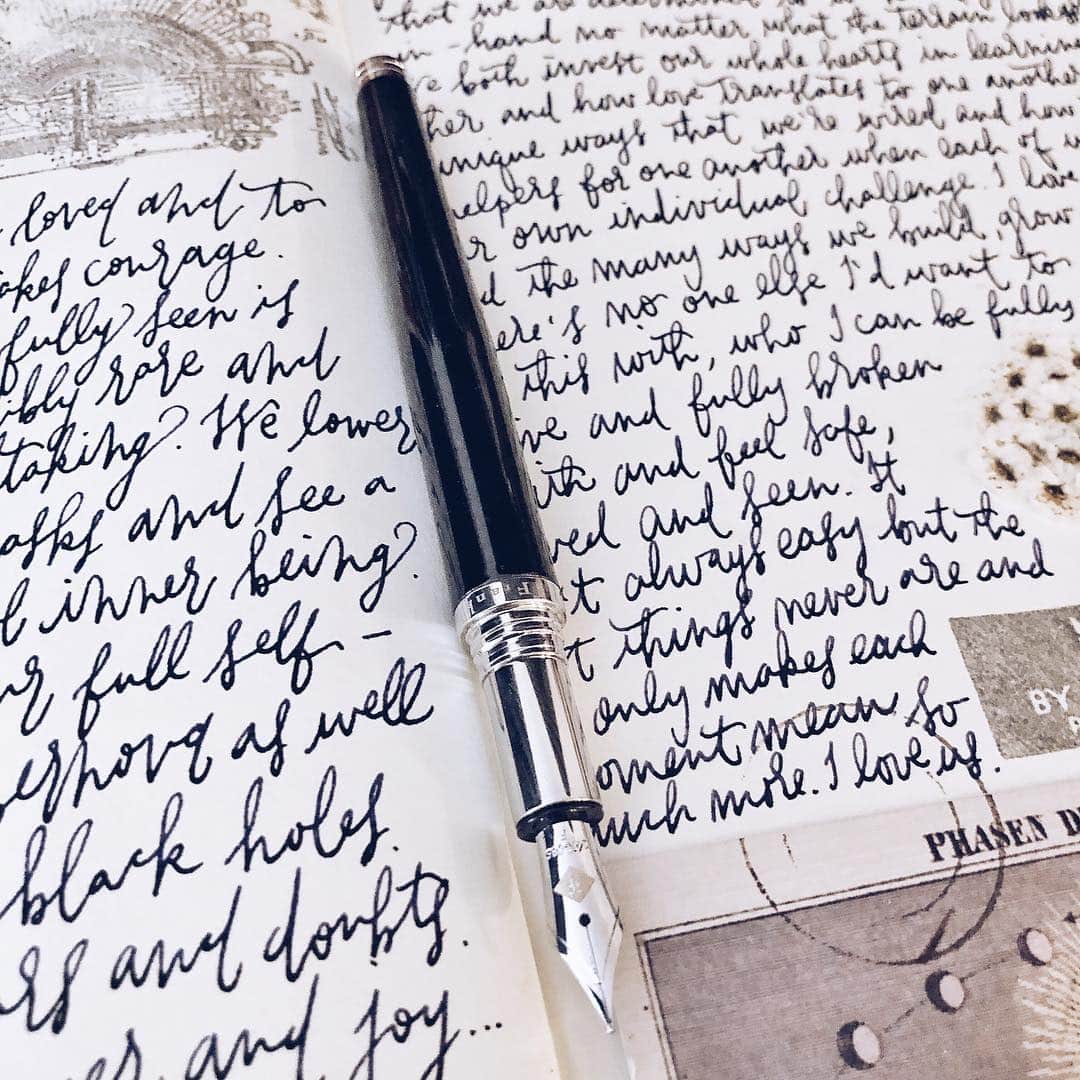 loved and to
courage.
fully seen is
rare and
We lower
and see a
inner being.
full self -
as well
black holes.
and doubts.
and joy...
that we are determined to
hand no matter what the terrain looks
both invest our whole hearts in learning
and how love translates to one another
unique ways that we're wired and how
helpers for one another when each of
own individual challenge. I love
the many ways we build, grow
no one else I'd want to
this with, who I can be fully
and fully broken
and feel safe,
and seen. It
always easy but the
things never are and
only makes each
moment mean so
much more. I love us.
Frank
BY
PHASEN D